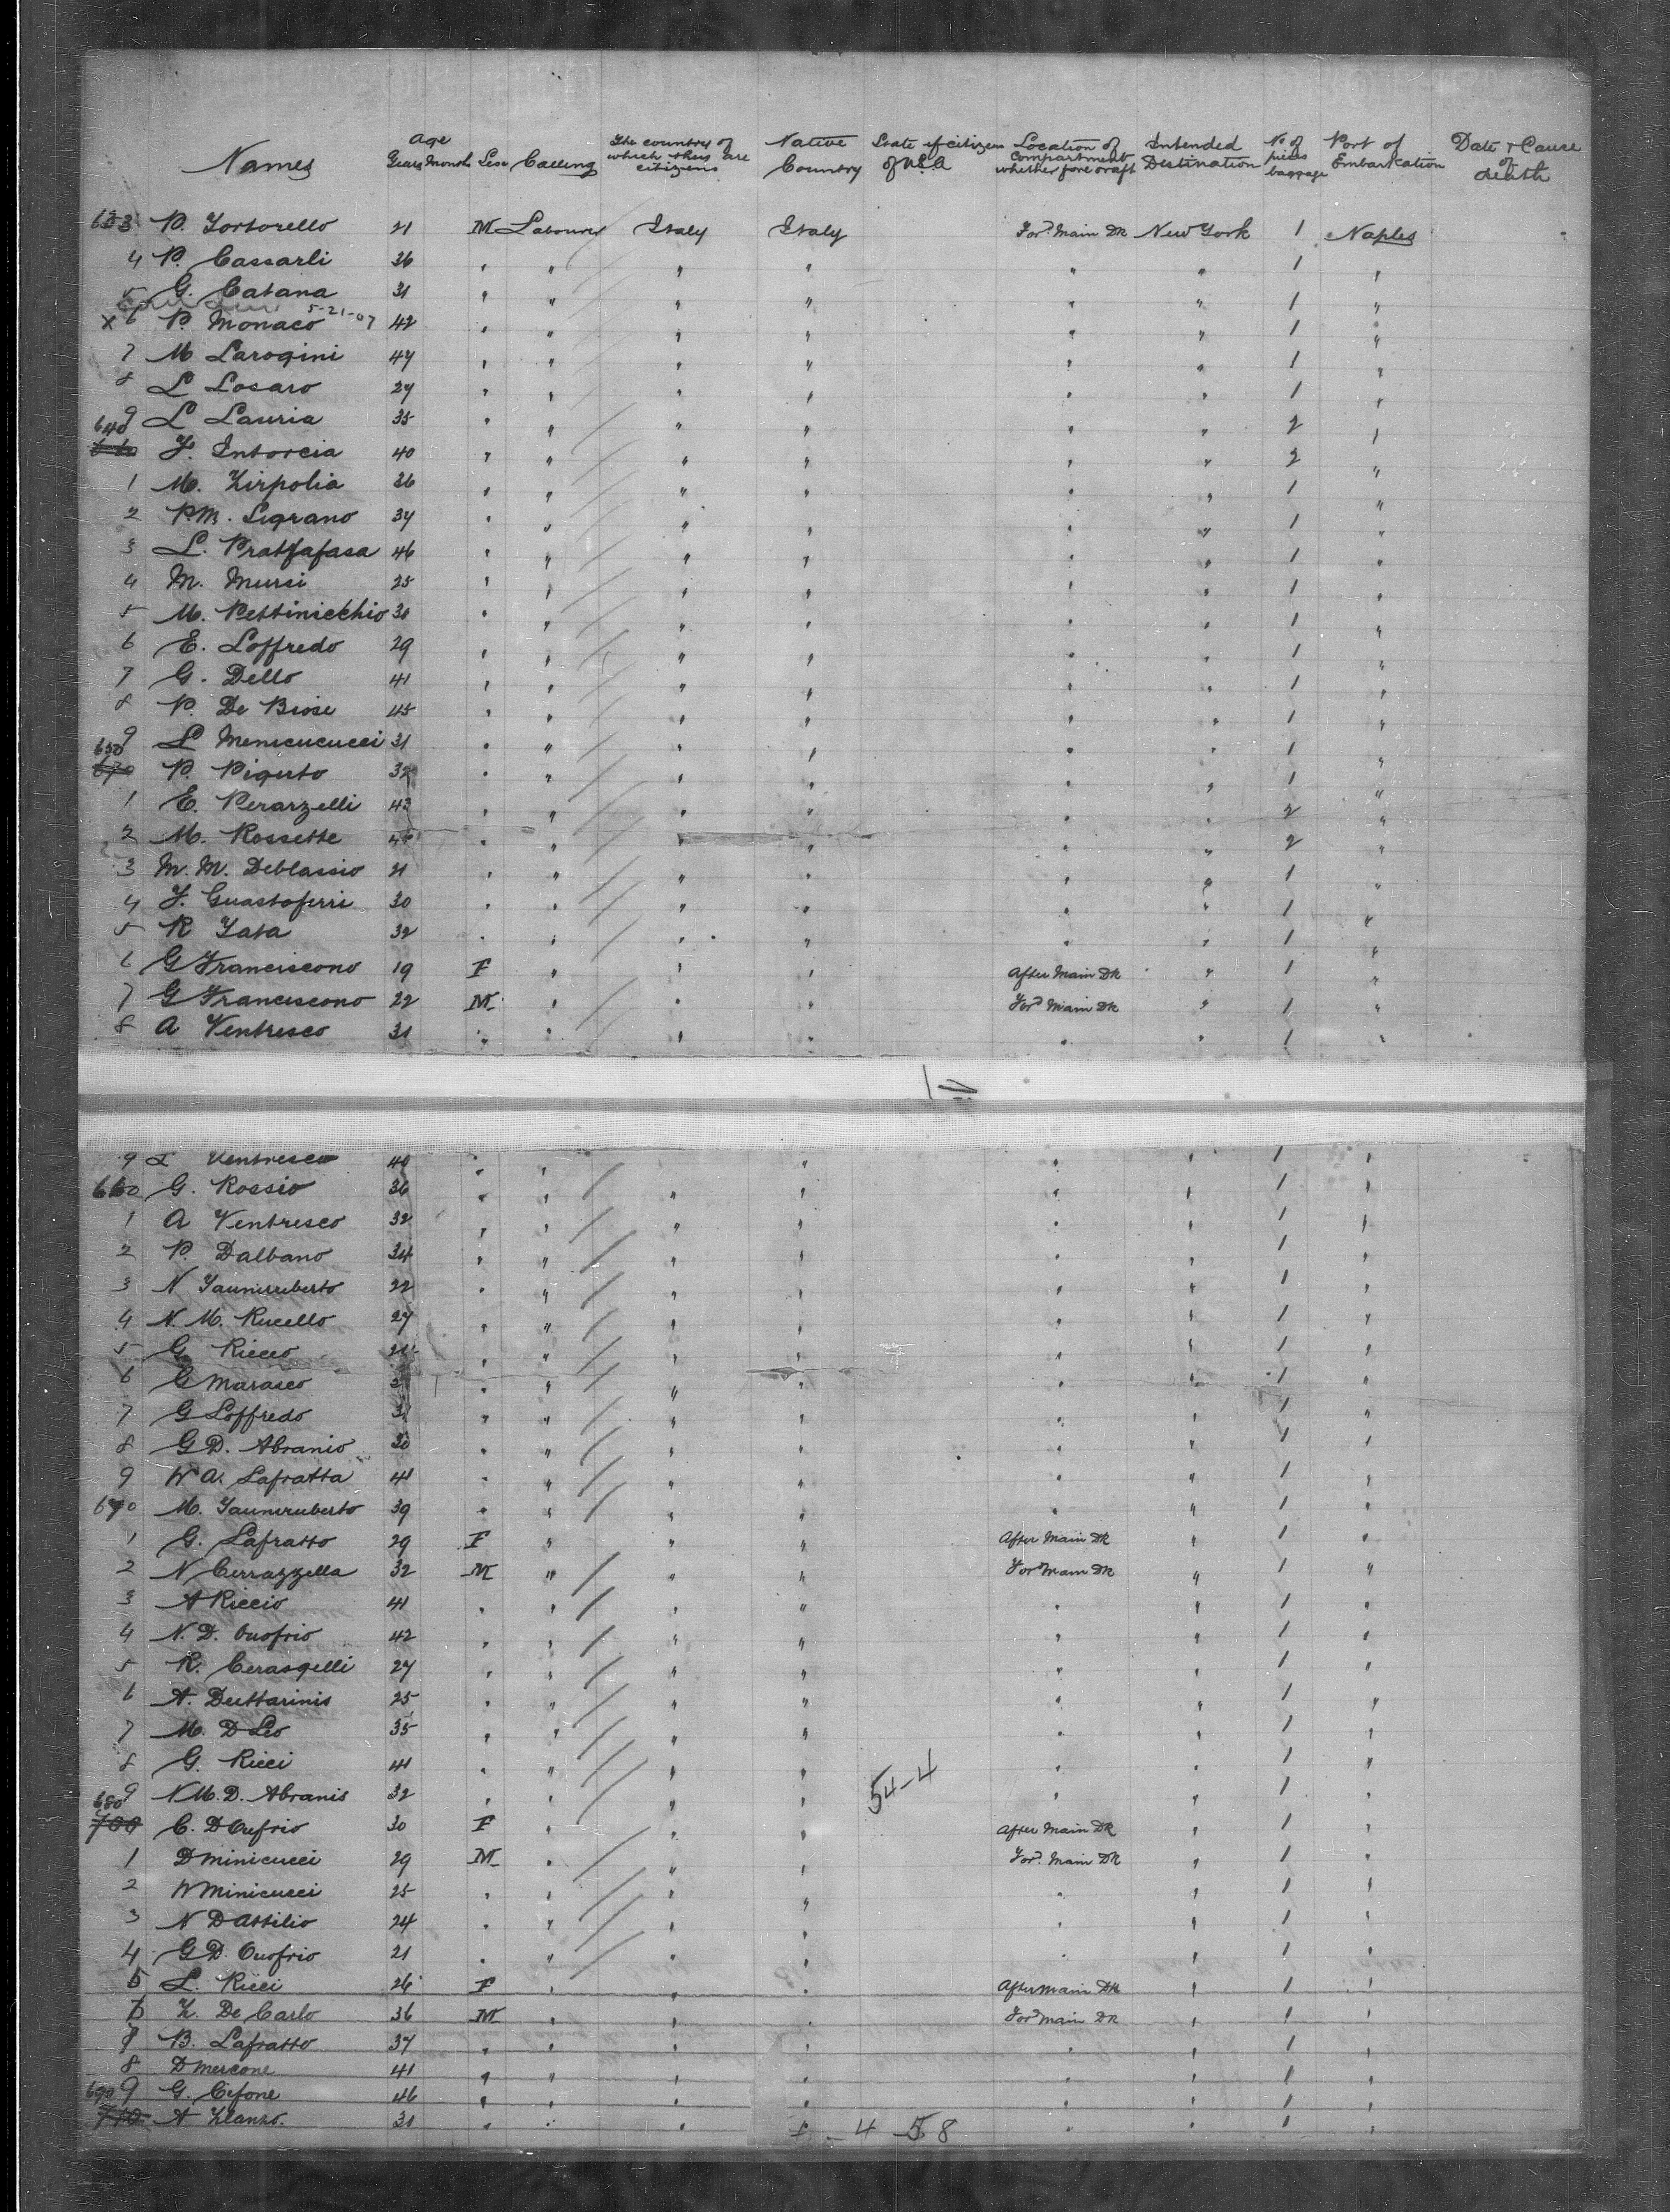 Names Age Years Months Sex Calling The country of which they are citizens Native Country State of citizens of U.S.A Location of Compartment whether fore or aft Intended Destination No of pieces baggage Port of Embarkation Date & Cause of death
633 P. Tortorello 21 M Labourer Italy Italy For'd Main Dk New York 1 Naples
4 P. Cassarli 36 " " " " " " 1 "
5 G. Catana 31 " " " " " " 1 "
5-21-07
X 6 P. Monaco 42 " " " " " " 1 "
7 M Larogini 47 " " " " " " 1 "
8 L Losaro 27 " " " " " " 1 "
9 L Lauria 35 " " " " " " 2 "
640 F. Intorcia 40 " " " " " " 2 "
1 M. Zirpolia 36 " " " " " " 1 "
2 P.M. Sigrano 34 " " " " " " 1 "
3 L. Prattafasa 46 " " " " " " 1 "
4 M. Mursi 25 " " " " " " 1 "
5 M. Pettinicchio 30 " " " " " " 1 "
6 E. Loffredo 29 " " " " " " 1 "
7 G. Dello 41 " " " " " " 1 "
8 P. De Biose 45 " " " " " " 1 "
9 L Menicucucci 31 " " " " " " 1 "
650 P. Piquto 32 " " " " " " 1 "
1 E. Perarzelli 43 " " " " " " 2 "
2 M. Rossette " " " " " " 2 "
3 M. M. Deblassio 21 " " " " " " 1 "
4 F. Guastaferri 30 " " " " " " 1 "
5 R Tata 32 " " " " " " 1 "
6 G Franciscono 19 F " " " After Main Dk " 1 "
7 G Franciscono 22 M " " " For'd Main Dk " 1 "
8 A Ventresco 31 " " " " " " 1 "
9 L Ventresco 40 " " " " " 1 "
660 G. Rossio 36 " " " " " " 1 "
1 A Ventresco 32 " " " " " " 1 "
2 P. Dalbano 34 " " " " " " 1 "
3 N Tauniruberto 22 " " " " " " 1 "
4 N. M. Rucello 27 " " " " " " 1 "
5 G. Ricco " " " " " " 1 "
6 G Marasco " " " " " " 1 "
7 G Loffredo " " " " " " 1 "
8 G D. Abranio 30 " " " " " " 1 "
9 W A. Lafratta 41 " " " " " " 1 "
670 M. Tauniruberto 39 " " " " " " 1 "
1 G. Lafratto 29 F " " " After Main Dk " 1 "
2 N Cerrazzella 32 M " " " For'd Main Dk " 1 "
3 A Riccio 41 " " " " " " 1 "
4 N. D. Onofrio 42 " " " " " " 1 "
5 R. Cerasqelli 27 " " " " " " 1 "
6 A. Duttarinis 25 " " " " " " 1 "
7 M. D Leo 35 " " " " " " 1 "
8 G. Ricci 41 " " " " " " 1 "
54-4
9 N M. D. Abranis 32 " " " " " " 1 "
680 C. D Onfrio 30 F " " " After Main Dk " 1 "
1 D Minicucci 29 M " " " For'd Main Dk " 1 "
2 W Minicucci 25 " " " " " " 1 "
3 N D Attilio 24 " " " " " " 1 "
4 G D. Onofrio 21 " " " " " " 1 "
5 L. Ricci 26 F " " " After Main Dk " 1 "
6 Z. De Carlo 36 M " " " For'd Main Dk " 1 "
7 B. Lafratto 37 " " " " " " 1 "
8 D Mercone 41 " " " " " " 1 "
9 G. Cifone 46 " " " " " " 1 "
690 A Zlanzo. 31 " " " " " 1 "
4 58